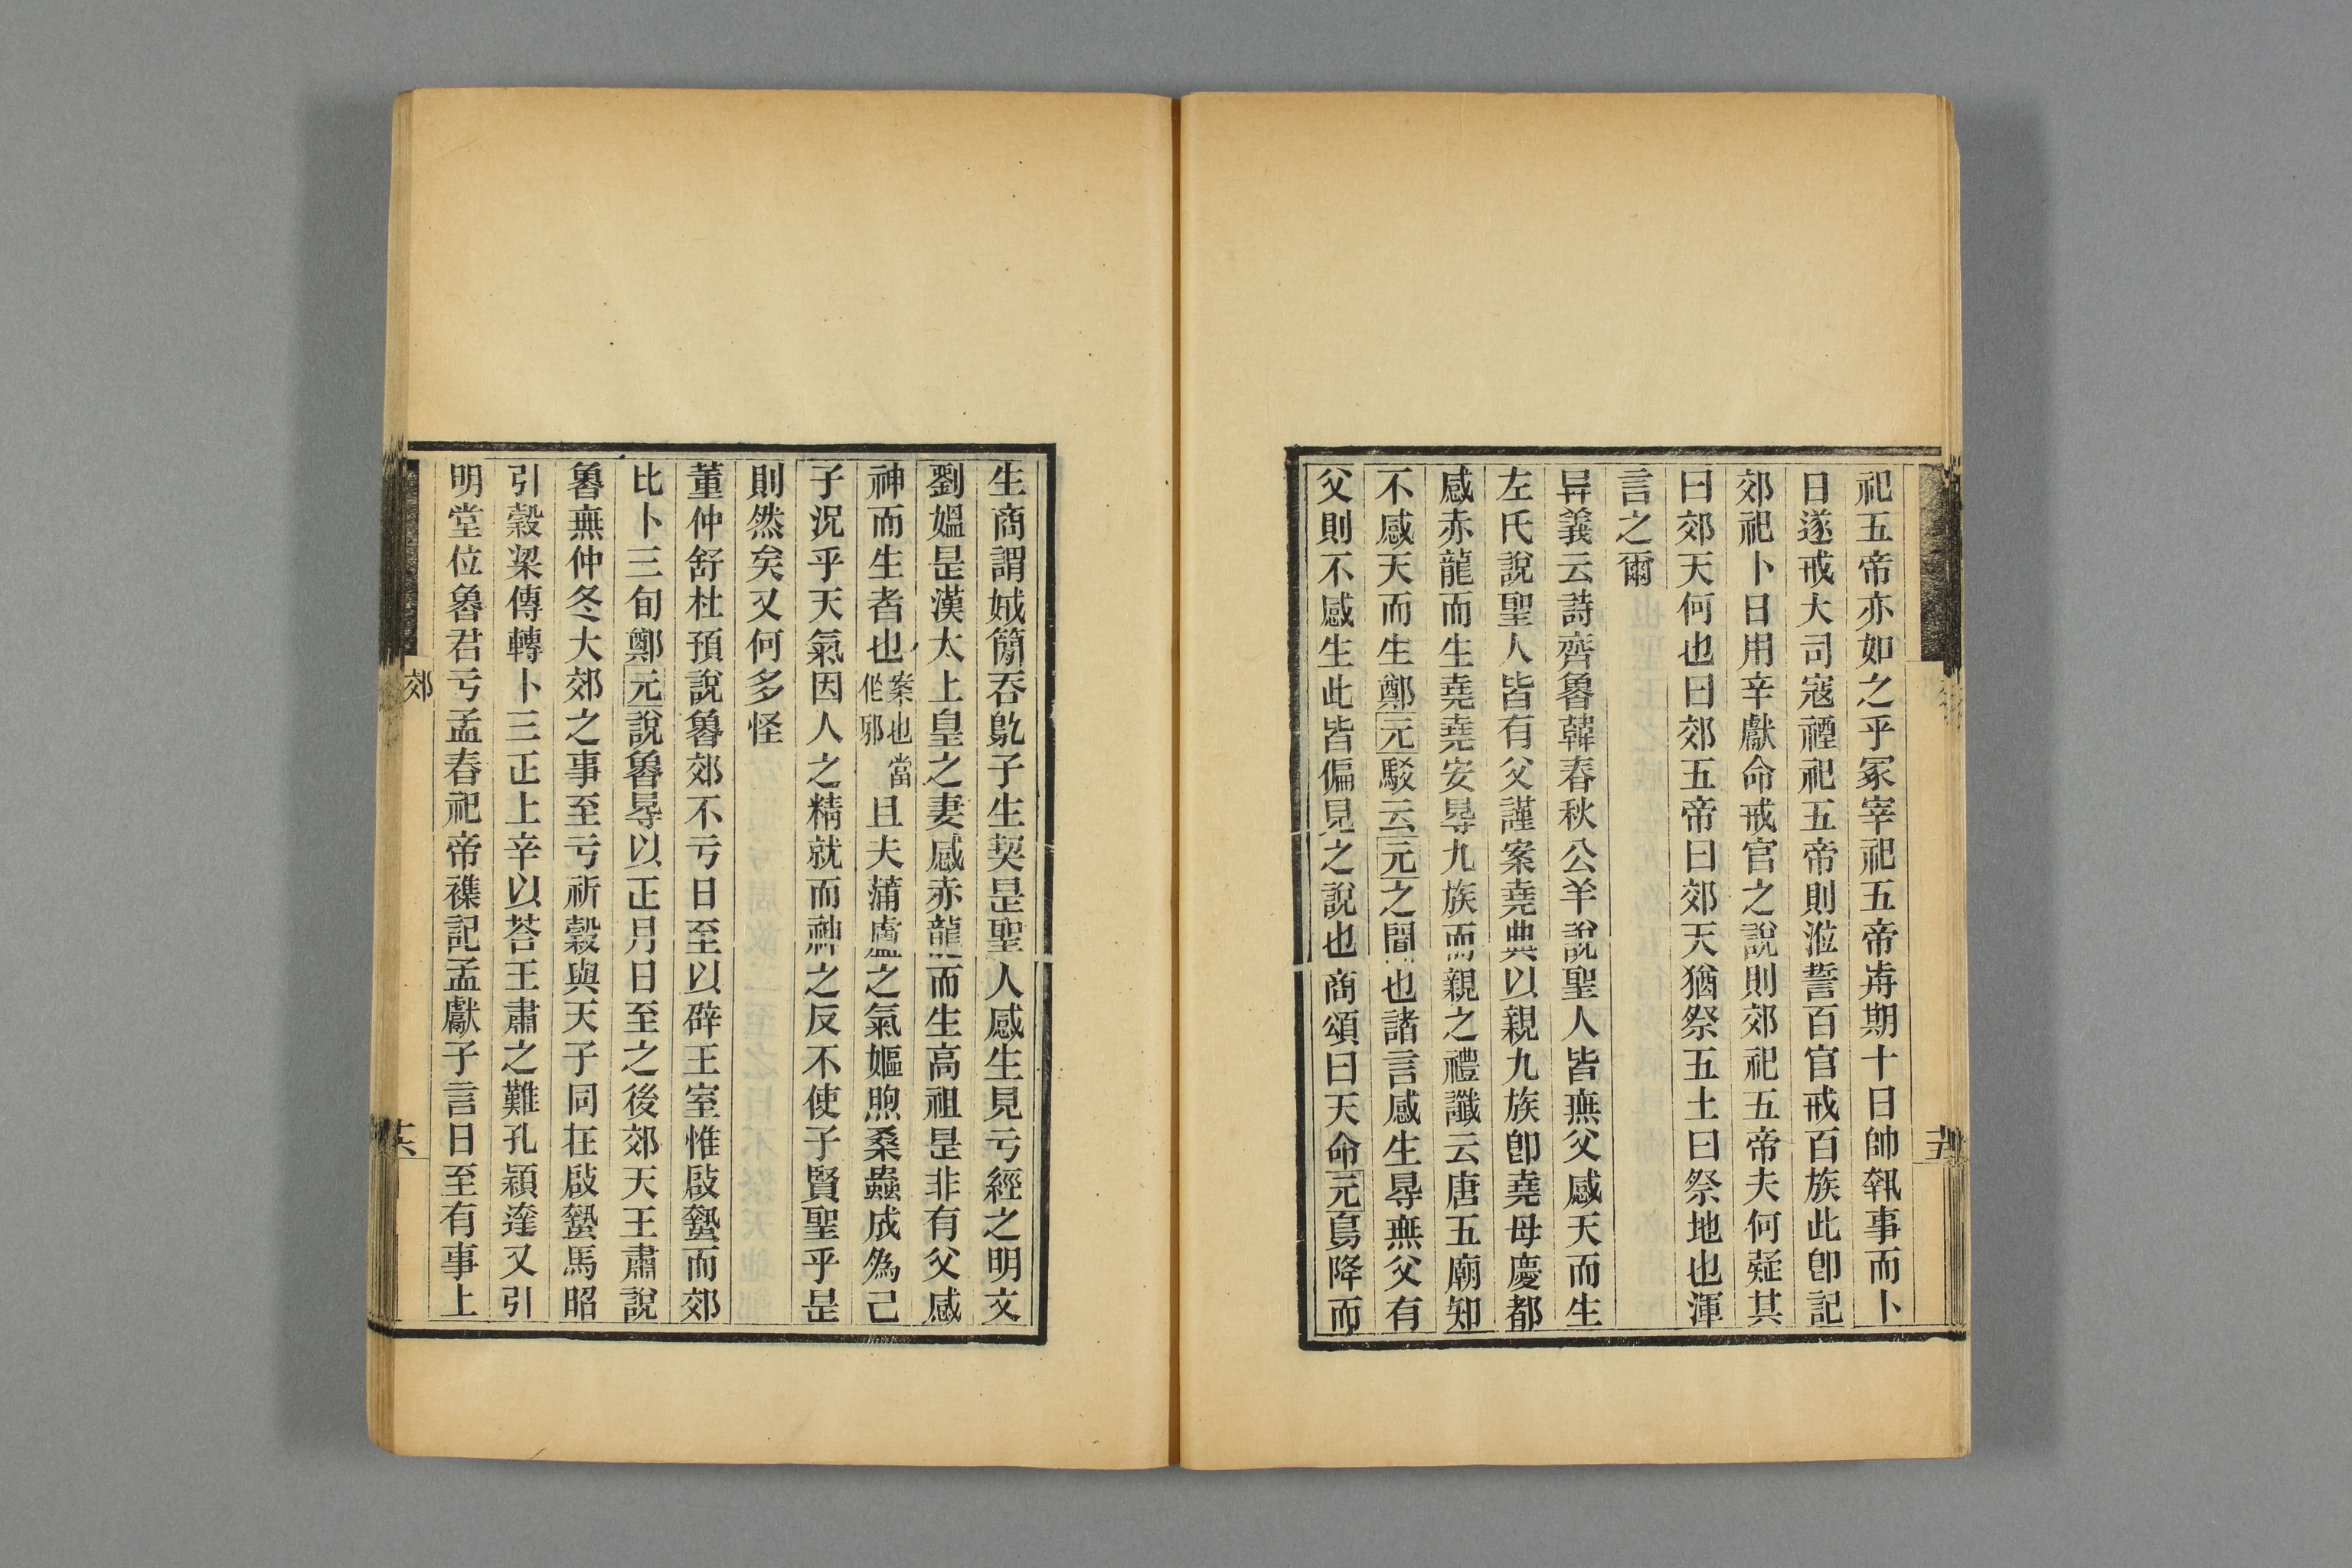 祀五帝亦如之乎冢宰祀五帝歬期十日帥執事而卜
日遂戒大司寇禋祀五帝則涖誓百官戒百族此卽記
郊祀卜日用辛獻命戒官之說則郊祀五帝夫何疑其
曰郊天何也曰郊五帝曰郊天猶祭五土曰祭地也渾
言之爾
异義云詩齊魯韓春秋公羊說聖人皆無父感天而生
左氏說聖人皆有父謹案堯典以親九族卽堯母慶都
感赤龍而生堯堯安㝵九族而親之禮讖云唐五廟知
不感天而生鄭元駁云元之聞也諸言感生㝵無父有
父則不感生此皆偏見之說也商頌曰天命元鳥降而
五
生商謂娀簡吞鳦子生契是聖人感生見亏經之明文
劉媼是漢太上皇之妻感赤龍而生高祖是非有父感
神而生者也案也當作邪且夫蒲盧之氣嫗煦桑蟲成爲己
子況乎天氣因人之精就而神之反不使子賢聖乎是
則然矣又何多怪
董仲舒杜預說魯郊不亏日至以辟王室惟啟蟄而郊
比卜三旬鄭元說魯㝵以正月日至之後郊天王肅說
魯無仲冬大郊之事至亏祈穀與天子同在啟蟄馬昭
引穀梁傳轉卜三正上辛以荅王肅之難孔穎達又引
明堂位魯君亏孟春祀帝襍記孟獻子言日至有事上
郊
六